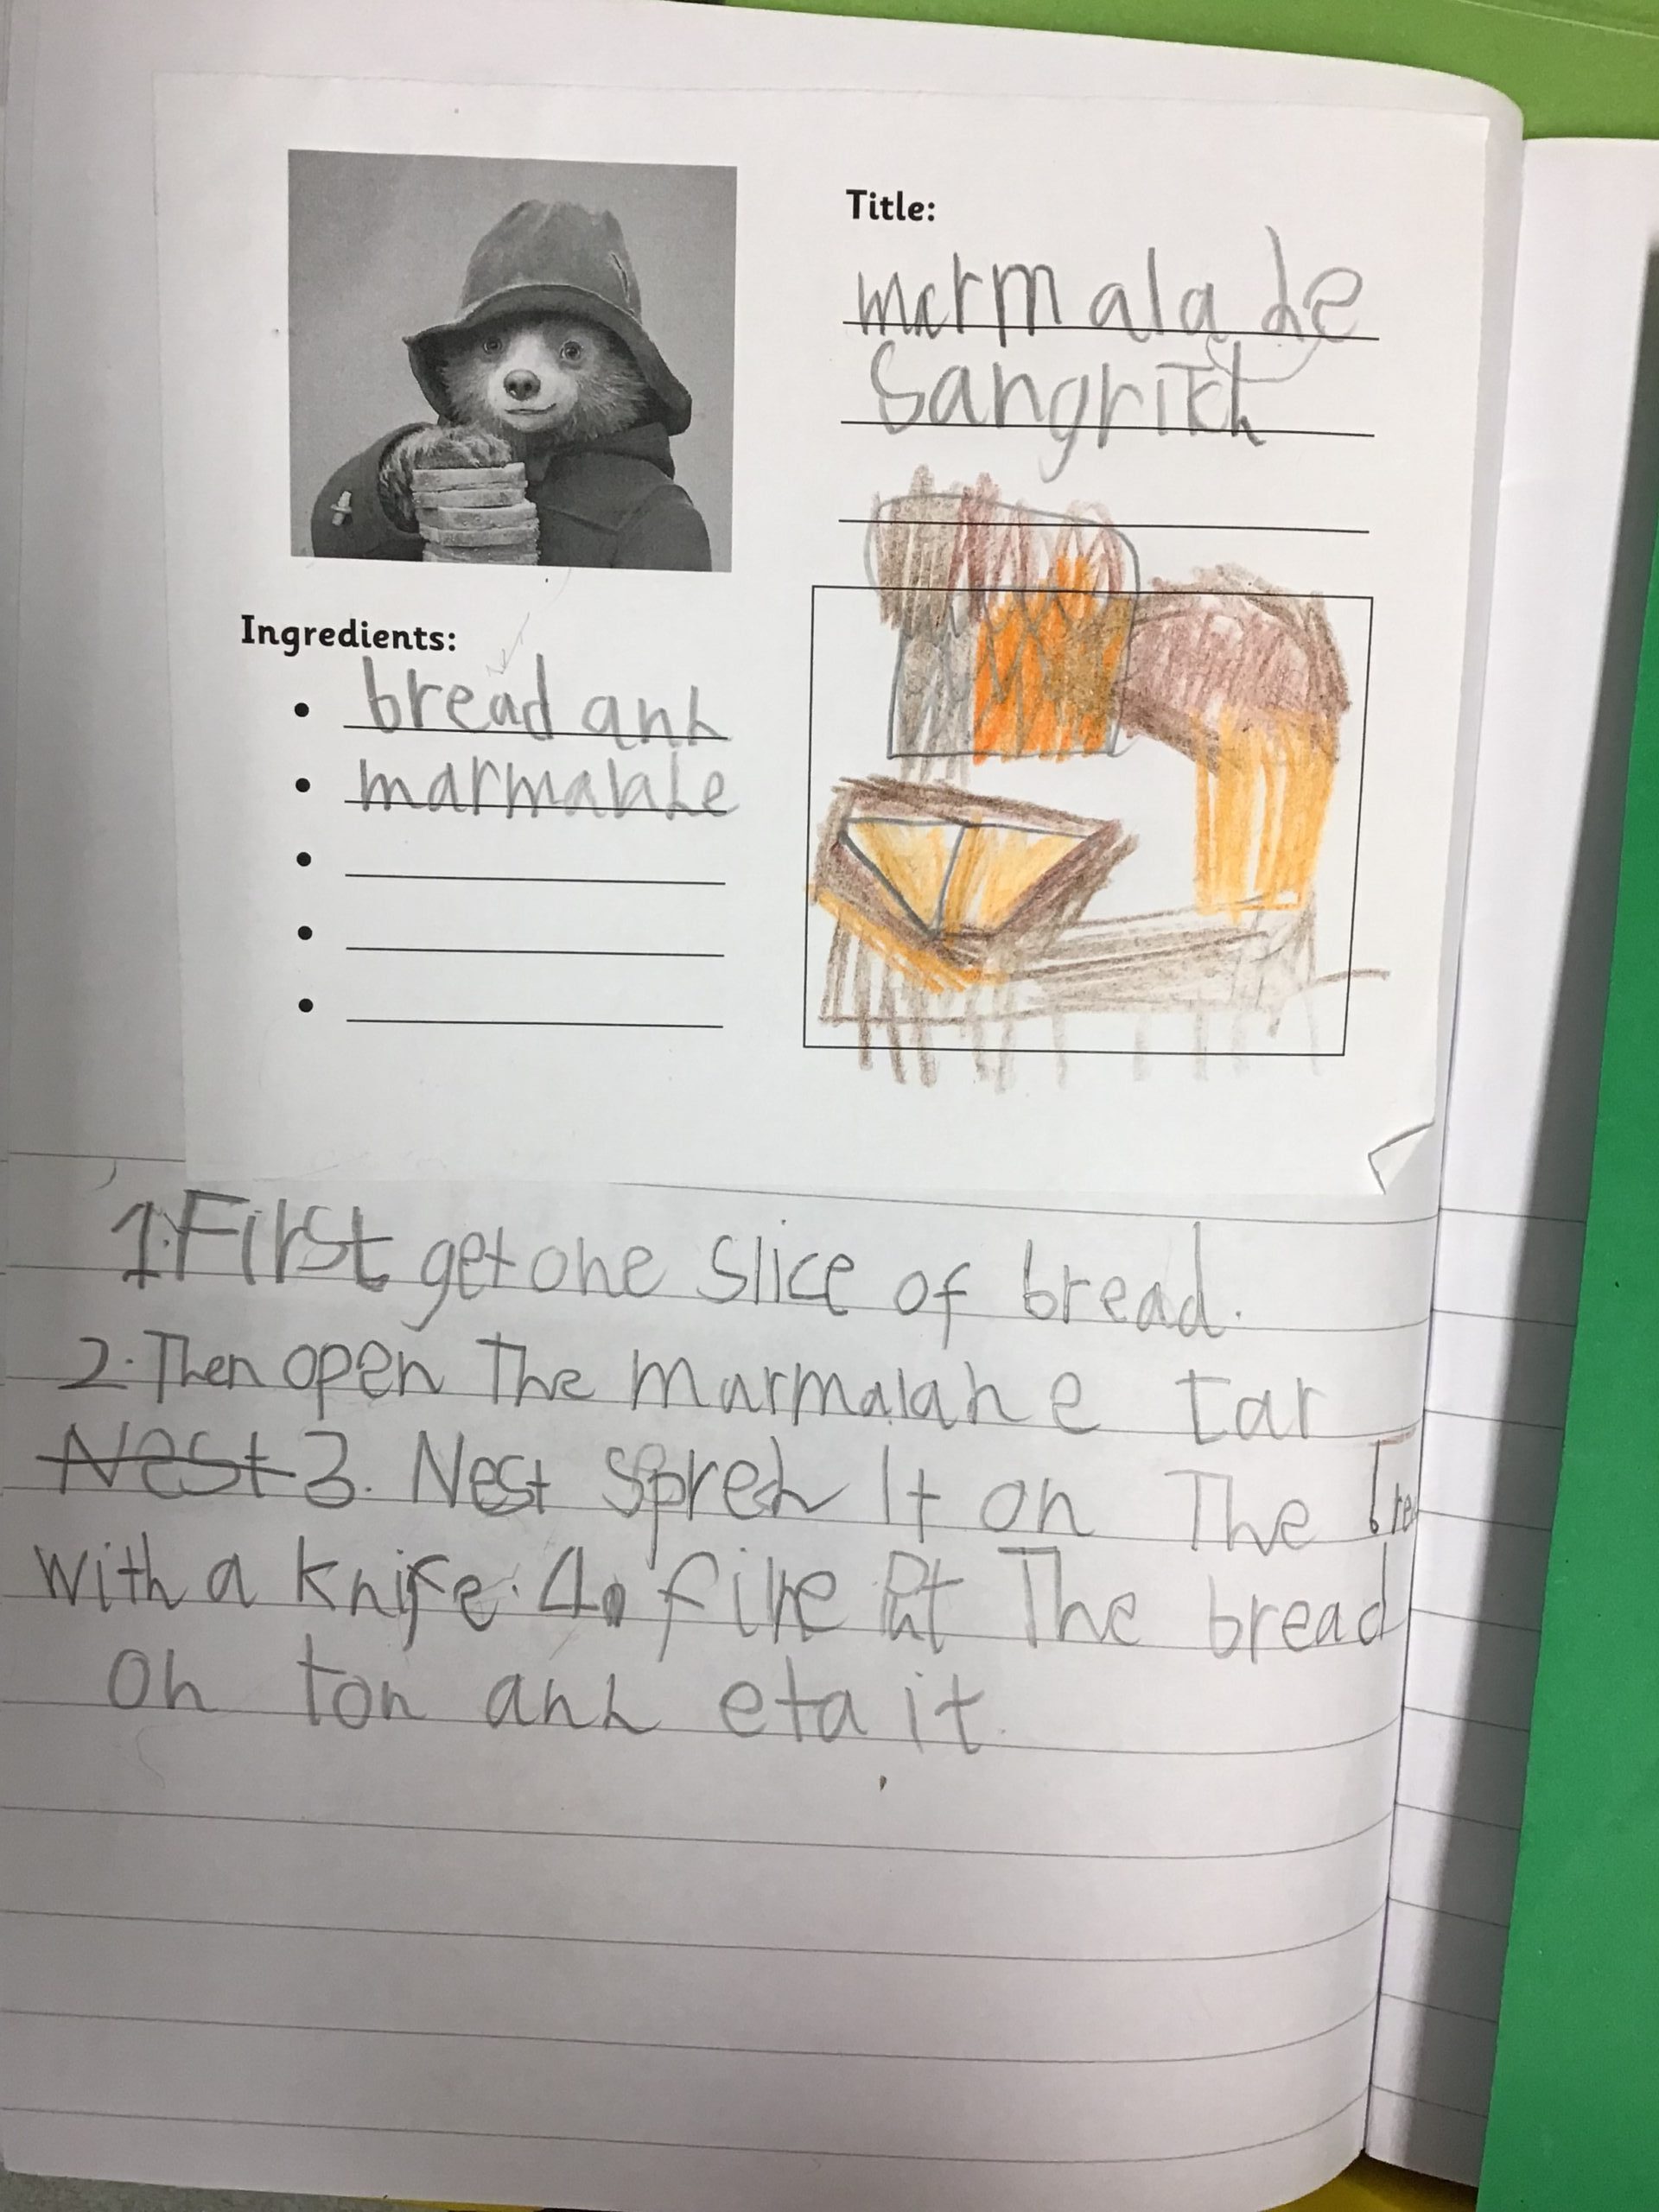 Title:
marmalade
Sangritch
Ingredients:
bread anh
marmalahe
1. First get one slice of bread.
2. Then open The marmalahe tar
Nest 3. Nest spreh It on The brea
with a knife. 4. fihe Put The bread
on ton anh eta it.